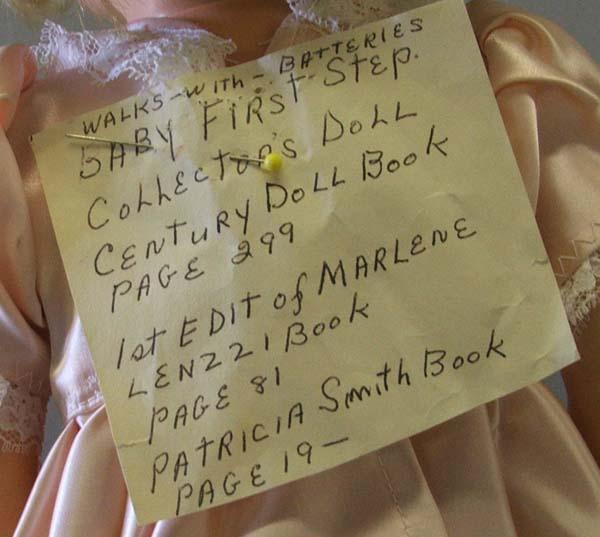 WALKS-WITH-BATTERIES
BABY FIRST STEP.
COLLECTOR'S DOLL
CENTURY DOLL BOOK
PAGE 299
1st EDIT of MARLENE
LENZZI BOOK
PAGE 81
PATRICIA Smith BOOK
PAGE 19—